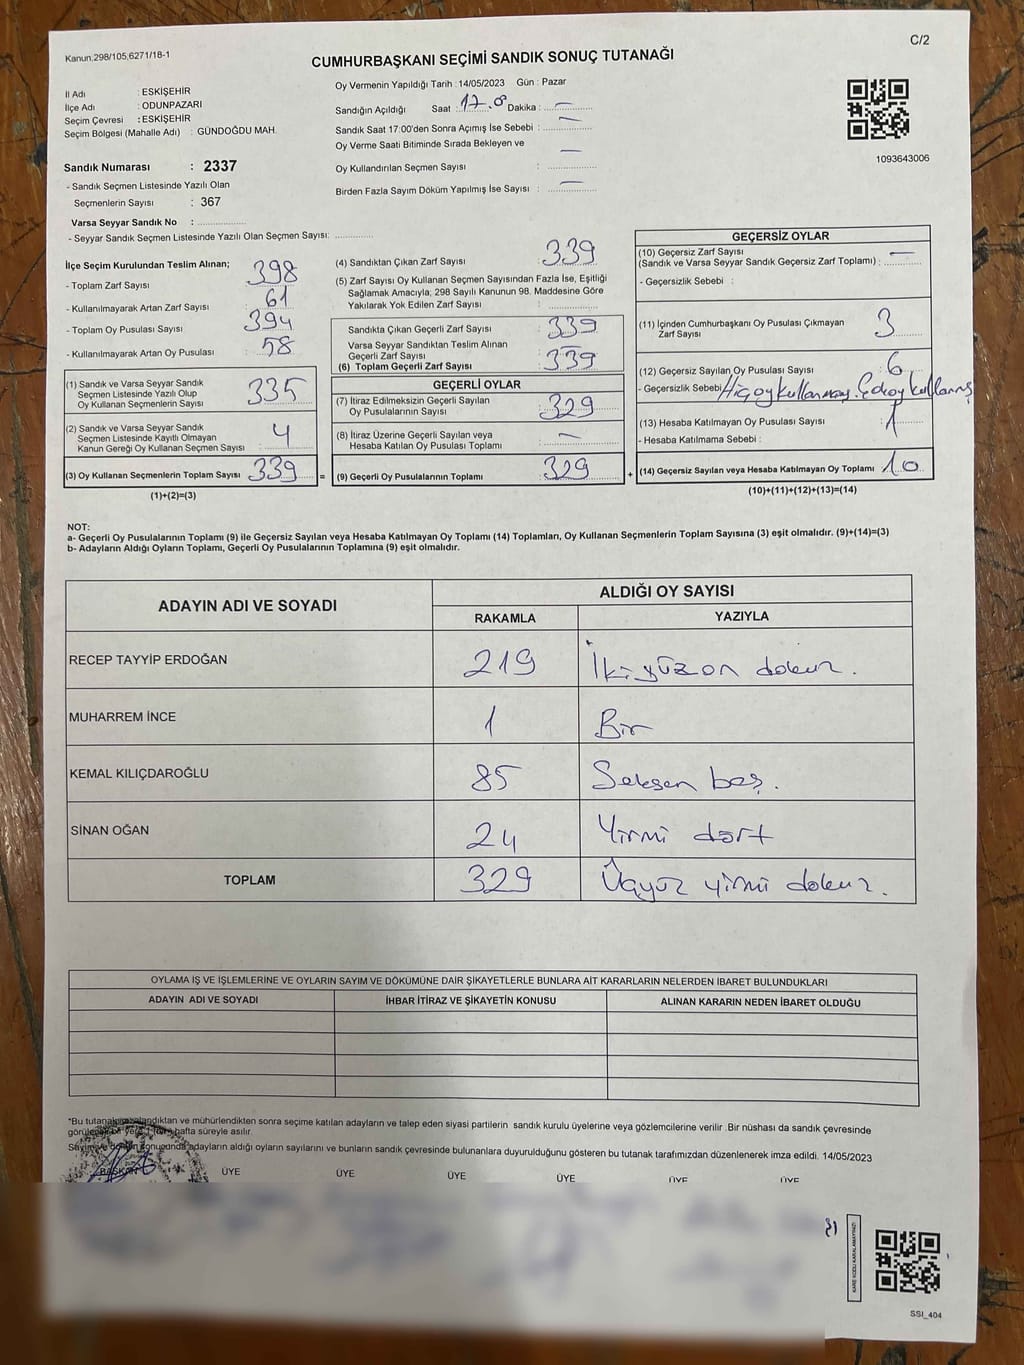 Kanun,298/105,6271/18-1
C/2
CUMHURBAŞKANI SEÇİMİ SANDIK SONUÇ TUTANAĞI
İl Adı : ESKİŞEHİR
İlçe Adı : ODUNPAZARI
Seçim Çevresi : ESKİŞEHİR
Seçim Bölgesi (Mahalle Adı) : GÜNDOĞDU MAH.
Oy Vermenin Yapıldığı Tarih : 14/05/2023 Gün : Pazar
Sandığın Açıldığı Saat : 17.0 Dakika : —
Sandık Saat 17:00'den Sonra Açımış İse Sebebi : —
Oy Verme Saati Bitiminde Sırada Bekleyen ve
Oy Kullandırılan Seçmen Sayısı : —
Birden Fazla Sayım Döküm Yapılmış İse Sayısı : —
1093643006
Sandık Numarası : 2337
- Sandık Seçmen Listesinde Yazılı Olan
Seçmenlerin Sayısı : 367
Varsa Seyyar Sandık No :
- Seyyar Sandık Seçmen Listesinde Yazılı Olan Seçmen Sayısı:
İlçe Seçim Kurulundan Teslim Alınan;
- Toplam Zarf Sayısı : 398
- Kullanılmayarak Artan Zarf Sayısı : 61
- Toplam Oy Pusulası Sayısı : 394
- Kullanılmayarak Artan Oy Pusulası : 58
(1) Sandık ve Varsa Seyyar Sandık
Seçmen Listesinde Yazılı Olup
Oy Kullanan Seçmenlerin Sayısı : 335
(2) Sandık ve Varsa Seyyar Sandık
Seçmen Listesinde Kayıtlı Olmayan
Kanun Gereği Oy Kullanan Seçmen Sayısı : 4
(3) Oy Kullanan Seçmenlerin Toplam Sayısı : 339 =
(1)+(2)=(3)
(4) Sandıktan Çıkan Zarf Sayısı : 339
(5) Zarf Sayısı Oy Kullanan Seçmen Sayısından Fazla İse, Eşitliği
Sağlamak Amacıyla; 298 Sayılı Kanunun 98. Maddesine Göre
Yakılarak Yok Edilen Zarf Sayısı :
Sandıkta Çıkan Geçerli Zarf Sayısı : 339
Varsa Seyyar Sandıktan Teslim Alınan
Geçerli Zarf Sayısı :
(6) Toplam Geçerli Zarf Sayısı : 339
GEÇERLİ OYLAR
(7) İtiraz Edilmeksizin Geçerli Sayılan
Oy Pusulalarının Sayısı : 329
(8) İtiraz Üzerine Geçerli Sayılan veya
Hesaba Katılan Oy Pusulası Toplamı : —
(9) Geçerli Oy Pusulalarının Toplamı : 329 +
GEÇERSİZ OYLAR
(10) Geçersiz Zarf Sayısı
(Sandık ve Varsa Seyyar Sandık Geçersiz Zarf Toplamı) : —
- Geçersizlik Sebebi :
(11) İçinden Cumhurbaşkanı Oy Pusulası Çıkmayan
Zarf Sayısı : 3
(12) Geçersiz Sayılan Oy Pusulası Sayısı : 6
- Geçersizlik Sebebi
(13) Hesaba Katılmayan Oy Pusulası Sayısı : 1
- Hesaba Katılmama Sebebi :
(14) Geçersiz Sayılan veya Hesaba Katılmayan Oy Toplamı : 10
(10)+(11)+(12)+(13)=(14)
NOT:
a- Geçerli Oy Pusulalarının Toplamı (9) ile Geçersiz Sayılan veya Hesaba Katılmayan Oy Toplamı (14) Toplamları, Oy Kullanan Seçmenlerin Toplam Sayısına (3) eşit olmalıdır. (9)+(14)=(3)
b- Adayların Aldığı Oyların Toplamı, Geçerli Oy Pusulalarının Toplamına (9) eşit olmalıdır.
ADAYIN ADI VE SOYADI ALDIĞI OY SAYISI
RAKAMLA YAZIYLA
RECEP TAYYİP ERDOĞAN 219 İkiyüzon dokuz.
MUHARREM İNCE 1 Bir
KEMAL KILIÇDAROĞLU 85 Seksen beş.
SİNAN OĞAN 24 Yirmi dört
TOPLAM 329 Üçyüz yirmi dokuz.
OYLAMA İŞ VE İŞLEMLERİNE VE OYLARIN SAYIM VE DÖKÜMÜNE DAİR ŞİKAYETLERLE BUNLARA AİT KARARLARIN NELERDEN İBARET BULUNDUKLARI
ADAYIN ADI VE SOYADI İHBAR İTİRAZ VE ŞİKAYETİN KONUSU ALINAN KARARIN NEDEN İBARET OLDUĞU
*Bu tutanak ve mühürlendikten sonra seçime katılan adayların ve talep eden siyasi partilerin sandık kurulu üyelerine veya gözlemcilerine verilir .Bir nüshası da sandık çevresinde
hafta süreyle asılır.
adayların aldığı oyların sayılarını ve bunların sandık çevresinde bulunanlara duyurulduğunu gösteren bu tutanak tarafımızdan düzenlenerek imza edildi. 14/05/2023
BAŞKAN ÜYE ÜYE ÜYE ÜYE ÜYE ÜYE
KARE KODU KARALAMAYINIZ!
SSI_404